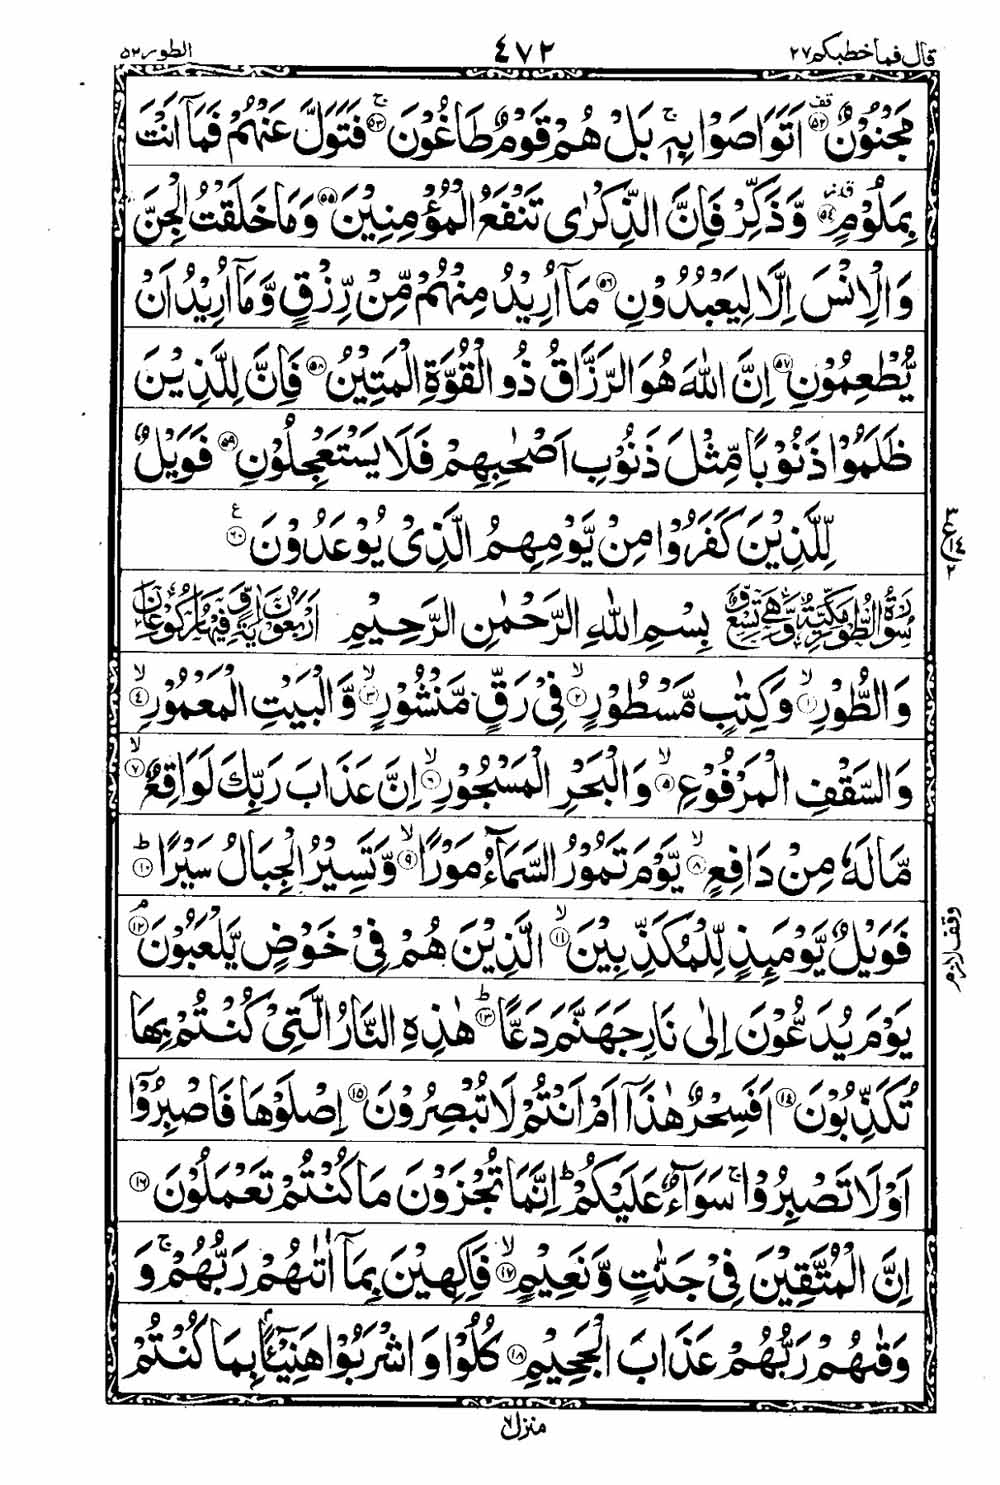 قال فما خطبكم ٢٧
٤٧٢
الطور ٥٢
مَجْنُوْنٌ ۟ۙ‏ ﴿٥٢﴾ قف اَتَوَاصَوْا بِهٖ ۚ بَلْ هُمْ قَوْمٌ طَاغُوْنَ ۚ ﴿٥٣﴾ فَتَوَلَّ عَنْهُمْ فَمَاۤ اَنْتَ
بِمَلُوْمٍ ﴿٥٤﴾ وَّذَكِّرْ فَاِنَّ الذِّكْرٰى تَنْفَعُ الْمُؤْمِنِيْنَ ﴿٥٥﴾ وَمَا خَلَقْتُ الْجِنَّ
وَالْاِنْسَ اِلَّا لِيَعْبُدُوْنِ ﴿٥٦﴾ مَاۤ اُرِيْدُ مِنْهُمْ مِّنْ رِّزْقٍ وَّمَاۤ اُرِيْدُ اَنْ
يُّطْعِمُوْنِ ﴿٥٧﴾ اِنَّ اللّٰهَ هُوَ الرَّزَّاقُ ذُو الْقُوَّةِ الْمَتِيْنُ ﴿٥٨﴾ فَاِنَّ لِلَّذِيْنَ
ظَلَمُوْا ذَنُوْبًا مِّثْلَ ذَنُوْبِ اَصْحٰبِهِمْ فَلَا يَسْتَعْجِلُوْنِ ﴿٥٩﴾ فَوَيْلٌ
لِّلَّذِيْنَ كَفَرُوْا مِنْ يَّوْمِهِمُ الَّذِىْ يُوْعَدُوْنَ ﴿٦٠﴾ ع
٣
ع ١٤
٢
سُوْرَةُ الطُّوْرِ مَكِّيَّةٌ وَّهِىَ تِسْعٌ وَّ بِسْمِ اللّٰهِ الرَّحْمٰنِ الرَّحِيْمِ اَرْبَعُوْنَ اٰيَةً وَّفِيْهَا رُكُوْعَانِ
وَالطُّوْرِ ۙ ﴿١﴾ وَكِتٰبٍ مَّسْطُوْرٍ ۙ ﴿٢﴾ فِىْ رَقٍّ مَّنْشُوْرٍ ۙ ﴿٣﴾ وَّالْبَيْتِ الْمَعْمُوْرِ ۙ ﴿٤﴾
وَالسَّقْفِ الْمَرْفُوْعِ ۙ ﴿٥﴾ وَالْبَحْرِ الْمَسْجُوْرِ ۙ ﴿٦﴾ اِنَّ عَذَابَ رَبِّكَ لَوَاقِعٌ ۙ ﴿٧﴾
مَّا لَهٗ مِنْ دَافِعٍ ۙ ﴿٨﴾ يَّوْمَ تَمُوْرُ السَّمَآءُ مَوْرًا ۙ ﴿٩﴾ وَّتَسِيْرُ الْجِبَالُ سَيْرًا ؕ ﴿١٠﴾
فَوَيْلٌ يَّوْمَئِذٍ لِّلْمُكَذِّبِيْنَ ۙ ﴿١١﴾ الَّذِيْنَ هُمْ فِىْ خَوْضٍ يَّلْعَبُوْنَ ۘ ﴿١٢﴾
وقف لازم
يَوْمَ يُدَعُّوْنَ اِلٰى نَارِ جَهَنَّمَ دَعًّا ؕ ﴿١٣﴾ هٰذِهِ النَّارُ الَّتِىْ كُنْتُمْ بِهَا
تُكَذِّبُوْنَ ﴿١٤﴾ اَفَسِحْرٌ هٰذَاۤ اَمْ اَنْتُمْ لَا تُبْصِرُوْنَ ﴿١٥﴾ اِصْلَوْهَا فَاصْبِرُوْۤا
اَوْ لَا تَصْبِرُوْا ۚ سَوَآءٌ عَلَيْكُمْ ؕ اِنَّمَا تُجْزَوْنَ مَا كُنْتُمْ تَعْمَلُوْنَ ﴿١٦﴾
اِنَّ الْمُتَّقِيْنَ فِىْ جَنّٰتٍ وَّنَعِيْمٍ ۙ ﴿١٧﴾ فٰكِهِيْنَ بِمَاۤ اٰتٰىهُمْ رَبُّهُمْ ۚ وَ
وَقٰىهُمْ رَبُّهُمْ عَذَابَ الْجَحِيْمِ ﴿١٨﴾ كُلُوْا وَاشْرَبُوْا هَنِيْٓئًۢا بِمَا كُنْتُمْ
منزل ٧